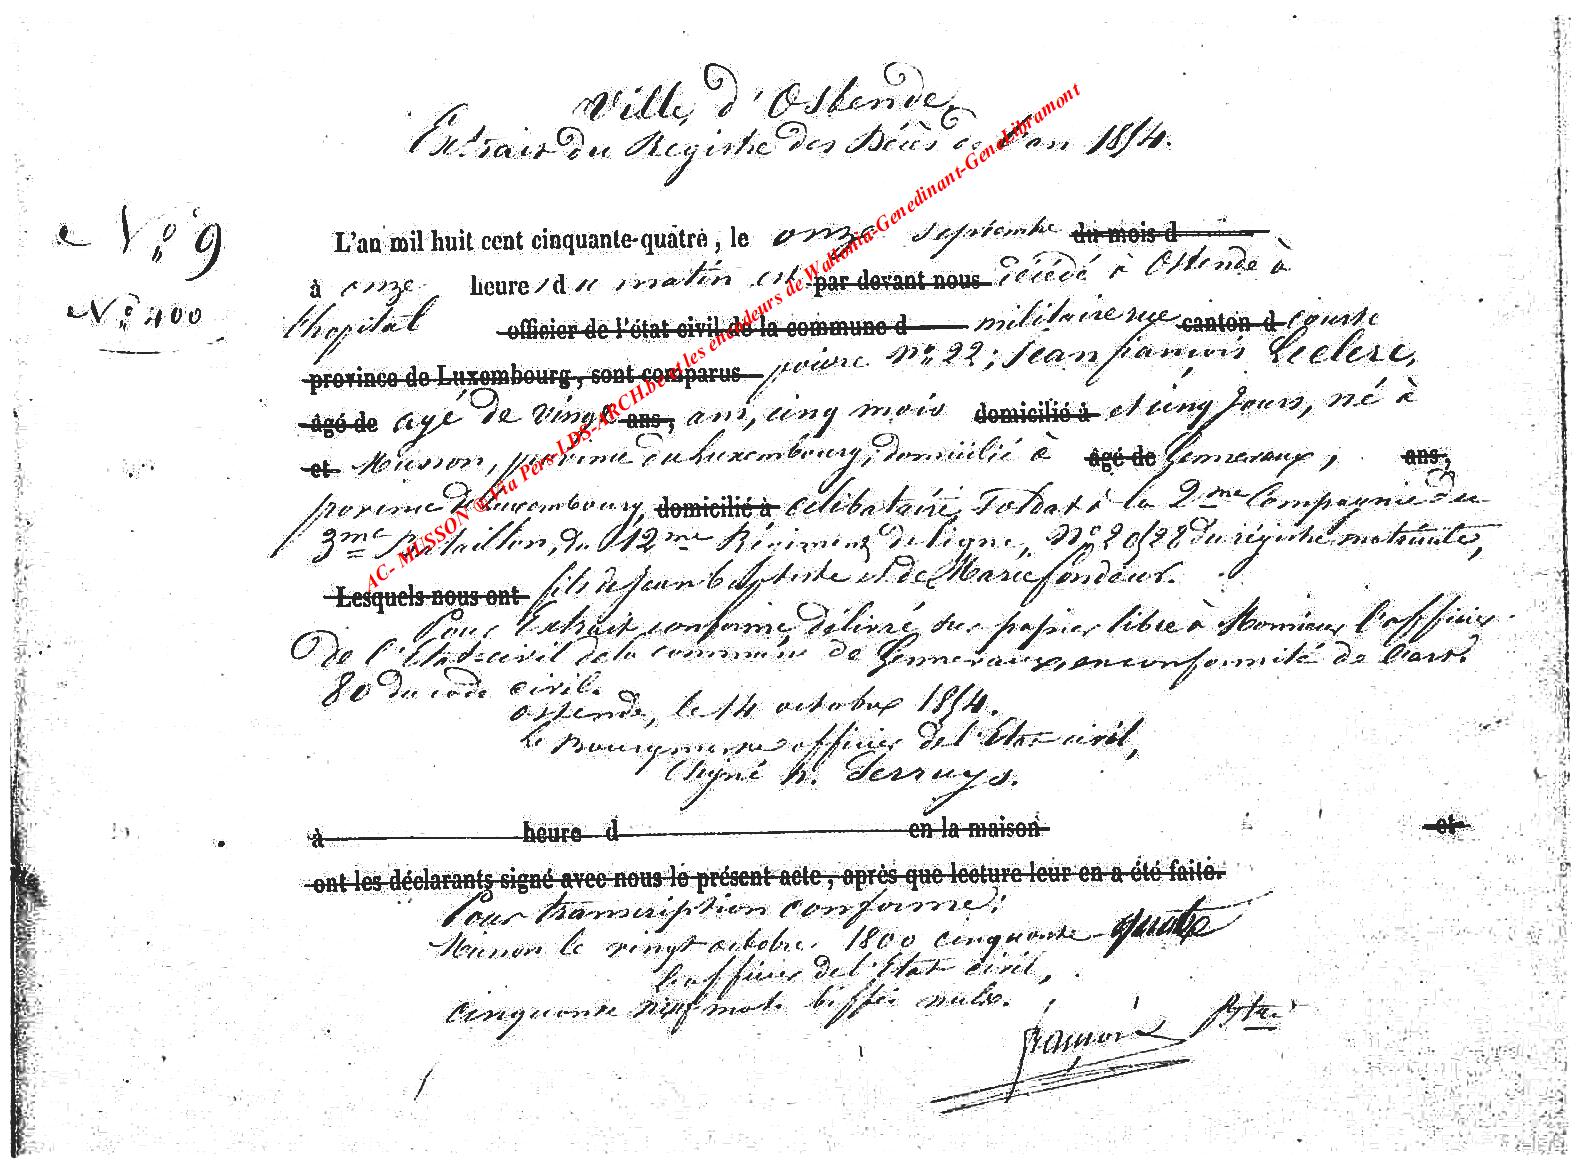 Ville d'Ostende,
Extrait du Registre des Décès de l'an 1854.
N° 9
N° 400
L'an mil huit cent cinquante-quatre, le onze septembre du mois d
à onze heures du matin est par devant nous décédé à Ostende à
l'hopital officier de l'état civil de la commune d militaire rue canton d courte
province de Luxembourg, sont comparus poivre N° 22; Jean françois Leclerc,
âgé de agé de vingt ans, ans, cinq mois domicilié à et cinq jours, né à
et Musson, province du Luxembourg, domicilié à âgé de Gennevaux, ans,
province de Luxembourg, domicilié à célibataire, soldat à la 2me Compagnie du
3me Bataillon, du 12me Régiment de ligne, N° 20528 du régistre matricule,
Lesquels nous ont fils de Jean baptiste et de Marie fondeur.
Pour Extrait conforme, délivré sur papier libre à Monsieur l'officier
De l'Etat-civil de la commune de Gennevaux, en conformité de l'art.
80 du code civil.
ostende, le 14 octobre 1854.
Le Bourgmestre officier de l'Etat civil,
(signé h. Serruys.
à heure d en la maison et
ont les déclarants signé avec nous le présent acte, après que lecture leur en a été faite.
Pour transcription conforme:
Musson le vingt octobre 1800 cinquante quatre
L'officier de l'Etat civil,
cinquante neuf mots biffés nuls.
françois
AC- MUSSON @ Via Pers-LDS-ARCH.be et les encodeurs de Wallonia-Genedinant-GeneLibramont